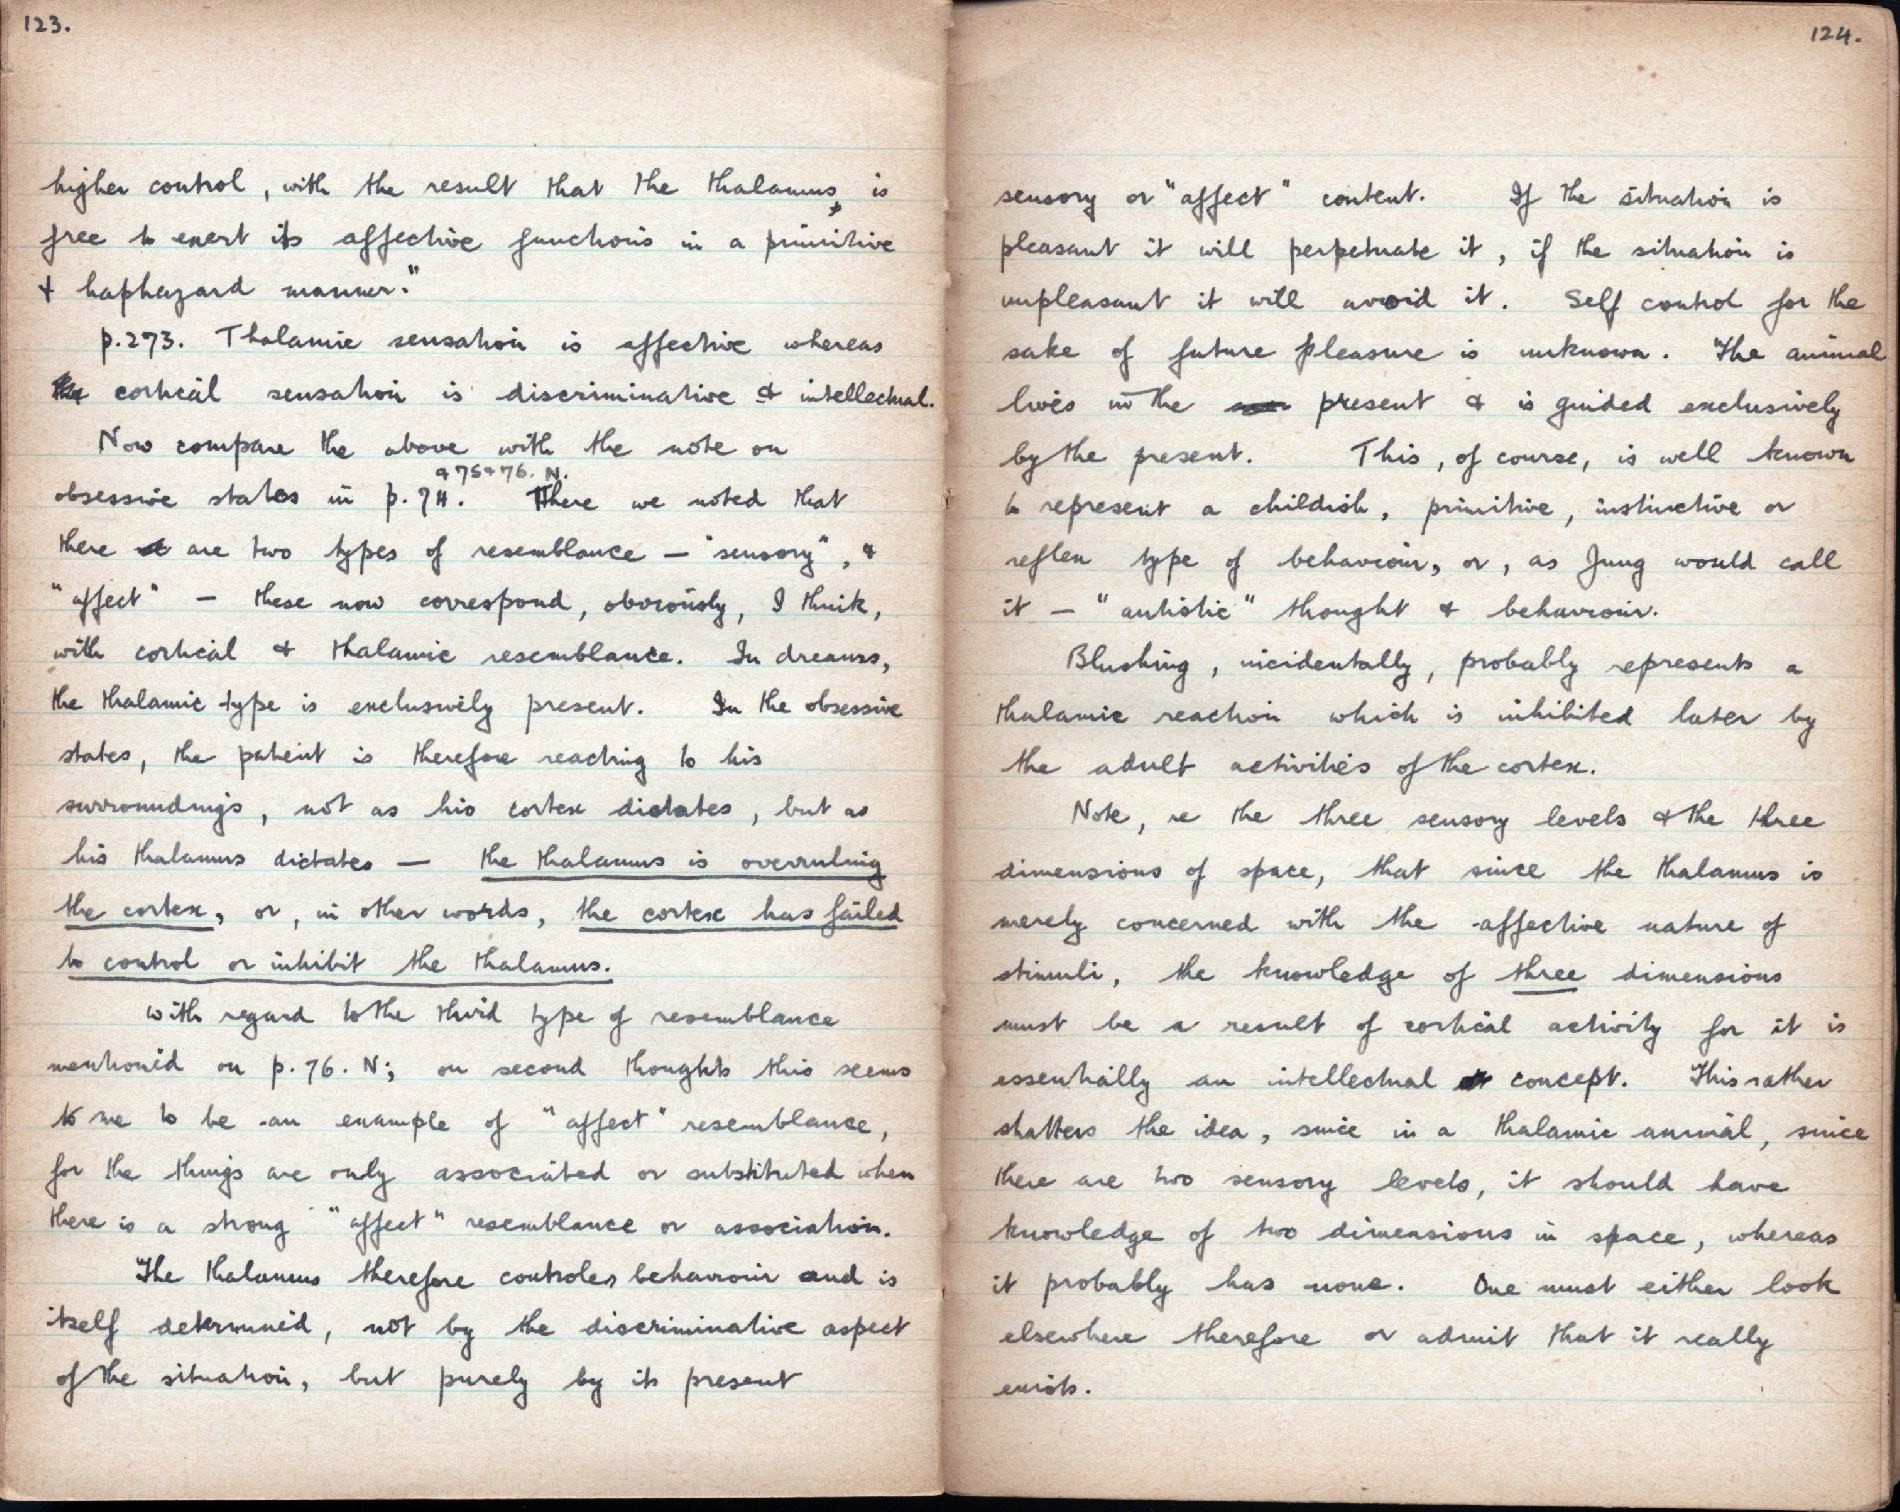 123.
higher control, with the result that the thalamus, is
free to exert its affective functions in a primitive
& haphazard manner."
p.273. Thalamic sensation is affective whereas
the cortical sensation is discriminative & intellectual.
Now compare the above with the note on
& 75 & 76. N.
obsessive states in p. 74. There we noted that
there are two types of resemblance — "sensory", &
"affect" — these now correspond, obviously, I think,
with cortical & thalamic resemblance. In dreams,
the thalamic type is exclusively present. In the obsessive
states, the patient is therefore reacting to his
surroundings, not as his cortex dictates, but as
his thalamus dictates — the thalamus is overruling
the cortex, or, in other words, the cortex has failed
to control or inhibit the thalamus.
with regard to the third type of resemblance
mentioned on p. 76. N; on second thoughts this seems
to me to be an example of "affect" resemblance,
for the things are only associated or substituted when
there is a strong "affect" resemblance or association.
The thalamus therefore controles behaviour and is
itself determined, not by the discriminative aspect
of the situation, but purely by its present
124.
sensory or "affect" content. If the situation is
pleasant it will perpetuate it, if the situation is
unpleasant it will avoid it. Self control for the
sake of future pleasure is unknown. The animal
lives in the present & is guided exclusively
by the present. This, of course, is well known
to represent a childish, primitive, instinctive or
reflex type of behaviour, or, as Jung would call
it — "autistic" thought & behaviour.
Blushing, incidentally, probably represents a
thalamic reaction which is inhibited later by
the adult activities of the cortex.
Note, re the three sensory levels & the three
dimensions of space, that since the thalamus is
merely concerned with the affective nature of
stimuli, the knowledge of three dimensions
must be a result of cortical activity for it is
essentially an intellectual concept. This rather
shatters the idea, since in a thalamic animal, since
there are two sensory levels, it should have
knowledge of two dimensions in space, whereas
it probably has none. One must either look
elsewhere therefore or admit that it really
exists.